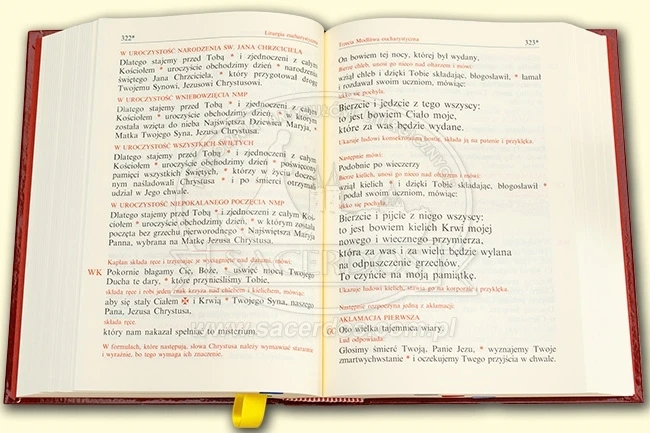 322*
Liturgia eucharystyczna
W UROCZYSTOŚĆ NARODZENIA ŚW. JANA CHRZCICIELA
Dlatego stajemy przed Tobą * i zjednoczeni z całym
Kościołem * uroczyście obchodzimy dzień * narodzenia
świętego Jana Chrzciciela, * który przygotował drogę
Twojemu Synowi, Jezusowi Chrystusowi.
W UROCZYSTOŚĆ WNIEBOWZIĘCIA NMP
Dlatego stajemy przed Tobą * i zjednoczeni z całym
Kościołem * uroczyście obchodzimy dzień, * w którym
została wzięta do nieba Najświętsza Dziewica Maryja, *
Matka Twojego Syna, Jezusa Chrystusa.
W UROCZYSTOŚĆ WSZYSTKICH ŚWIĘTYCH
Dlatego stajemy przed Tobą * i zjednoczeni z całym
Kościołem * uroczyście obchodzimy dzień * poświęcony
pamięci wszystkich Świętych, * którzy w życiu docze-
nym naśladowali Chrystusa * i po śmierci otrzymali
udział w Jego chwale.
W UROCZYSTOŚĆ NIEPOKALANEGO POCZĘCIA NMP
Dlatego stajemy przed Tobą * i zjednoczeni z całym Ko-
ściołem * uroczyście obchodzimy dzień, * w którym została
poczęta bez grzechu pierworodnego * Najświętsza Maryja
Panna, wybrana na Matkę Jezusa Chrystusa.
Kapłan składa ręce i trzymając je wyciągnięte nad darami, mówi:
WK Pokornie błagamy Cię, Boże, * uświęć mocą Twojego
Ducha te dary, * które przynieśliśmy Tobie,
składa ręce i robi jeden znak krzyża nad chlebem i kielichem, mówiąc:
aby się stały Ciałem ✠ i Krwią * Twojego Syna, naszego
Pana, Jezusa Chrystusa,
składa ręce.
który nam nakazał spełniać to misterium.
W formułach, które następują, słowa Chrystusa należy wymawiać starannie
i wyraźnie, bo tego wymaga ich znaczenie.
Trzecia Modlitwa eucharystyczna
323*
On bowiem tej nocy, której był wydany,
Bierze chleb, unosi go nieco nad ołtarzem i mówi:
wziął chleb i dzięki Tobie składając, błogosławił, * łamał
i rozdawał swoim uczniom, mówiąc:
Lekko się pochyla.
Bierzcie i jedzcie z tego wszyscy:
to jest bowiem Ciało moje,
które za was będzie wydane.
Ukazuje ludowi konsekrowaną hostię, składa ją na patenie i przyklęka.
Następnie mówi:
Podobnie po wieczerzy
Bierze kielich, unosi go nieco nad ołtarzem i mówi:
wziął kielich * i dzięki Tobie składając, błogosławił *
i podał swoim uczniom, mówiąc:
Lekko się pochyla.
Bierzcie i pijcie z niego wszyscy:
to jest bowiem kielich Krwi mojej
nowego i wiecznego przymierza,
która za was i za wielu będzie wylana
na odpuszczenie grzechów.
To czyńcie na moją pamiątkę.
Ukazuje ludowi kielich, stawia go na korporale i przyklęka.
Następnie rozpoczyna jedną z aklamacji:
AKLAMACJA PIERWSZA
Oto wielka tajemnica wiary.
Lud odpowiada:
Głosimy śmierć Twoją, Panie Jezu, * wyznajemy Twoje
zmartwychwstanie * i oczekujemy Twego przyjścia w chwale.